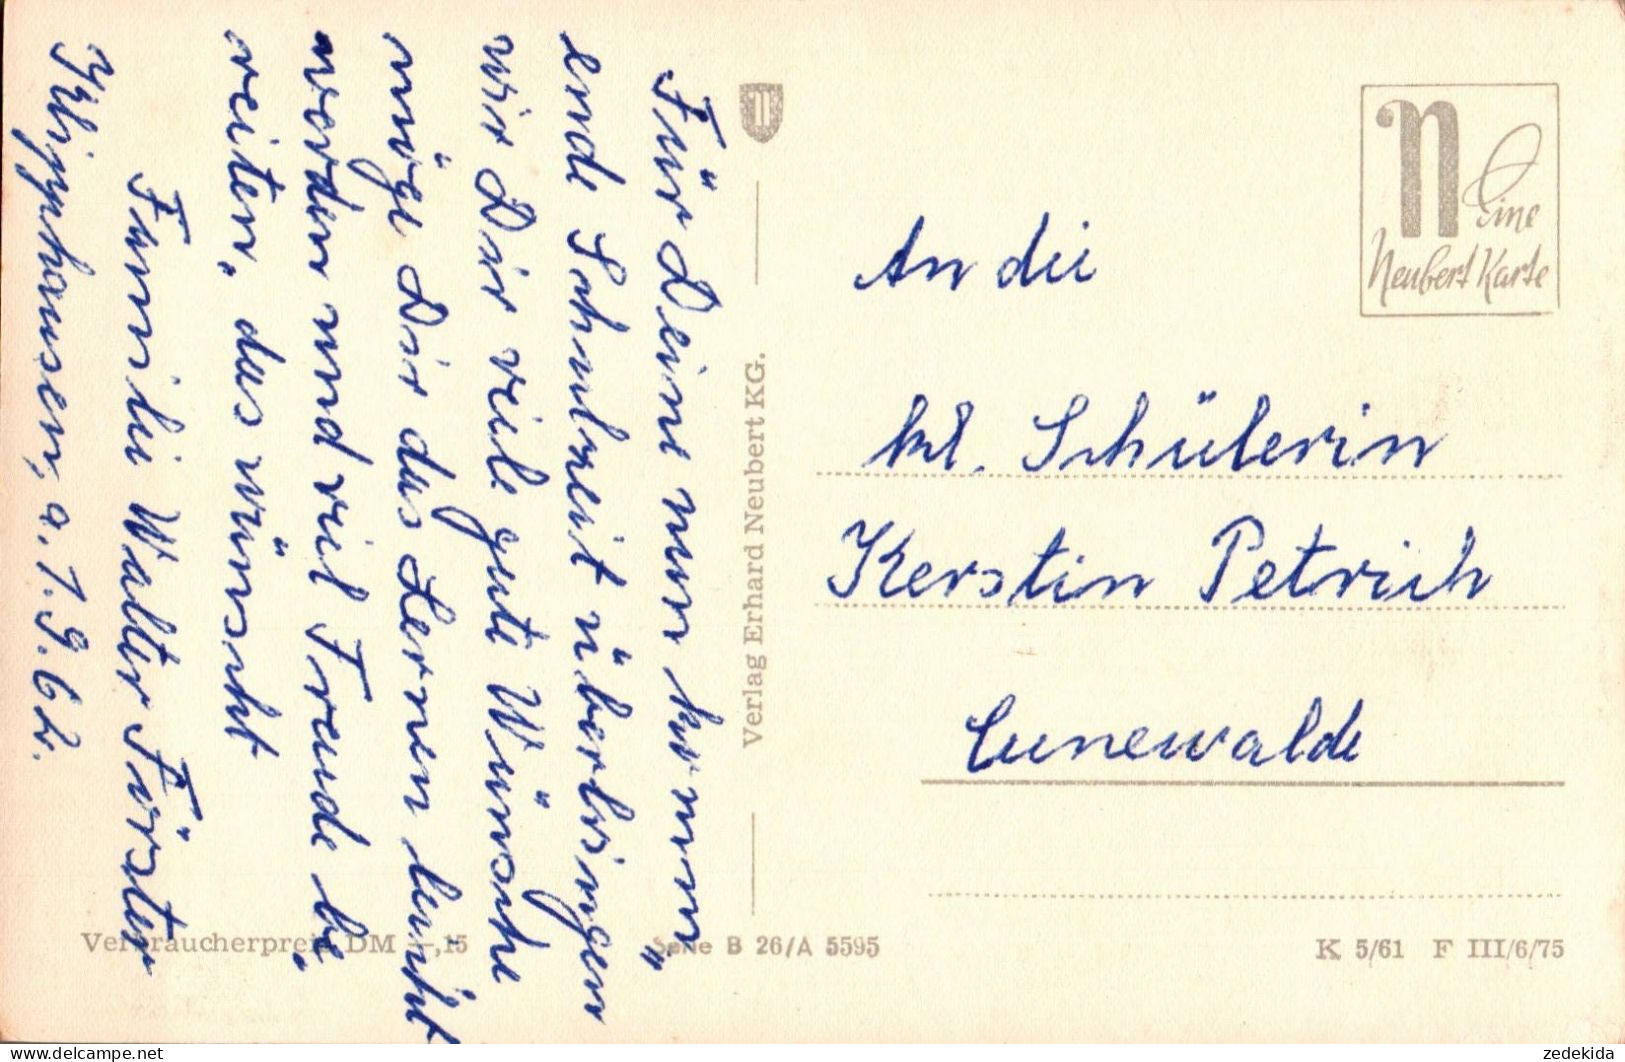 Für Deine nun komm„
ende Schulzeit überbringen
wir Dir viele gute Wünsche
möge Dir das Lernen leicht
werden und viel Freude be„
reiten, das wünscht
Familie Walter Förster
Klipphausen, a. 1.9.62.
Verlag Erhard Neubert KG.
N Eine
Neubert Karte
An die
kl. Schülerin
Kerstin Petrich
Cunewalde
Verbraucherpreis DM -,15
Serie B 26/A 5595
K 5/61 F III/6/75
zedekida